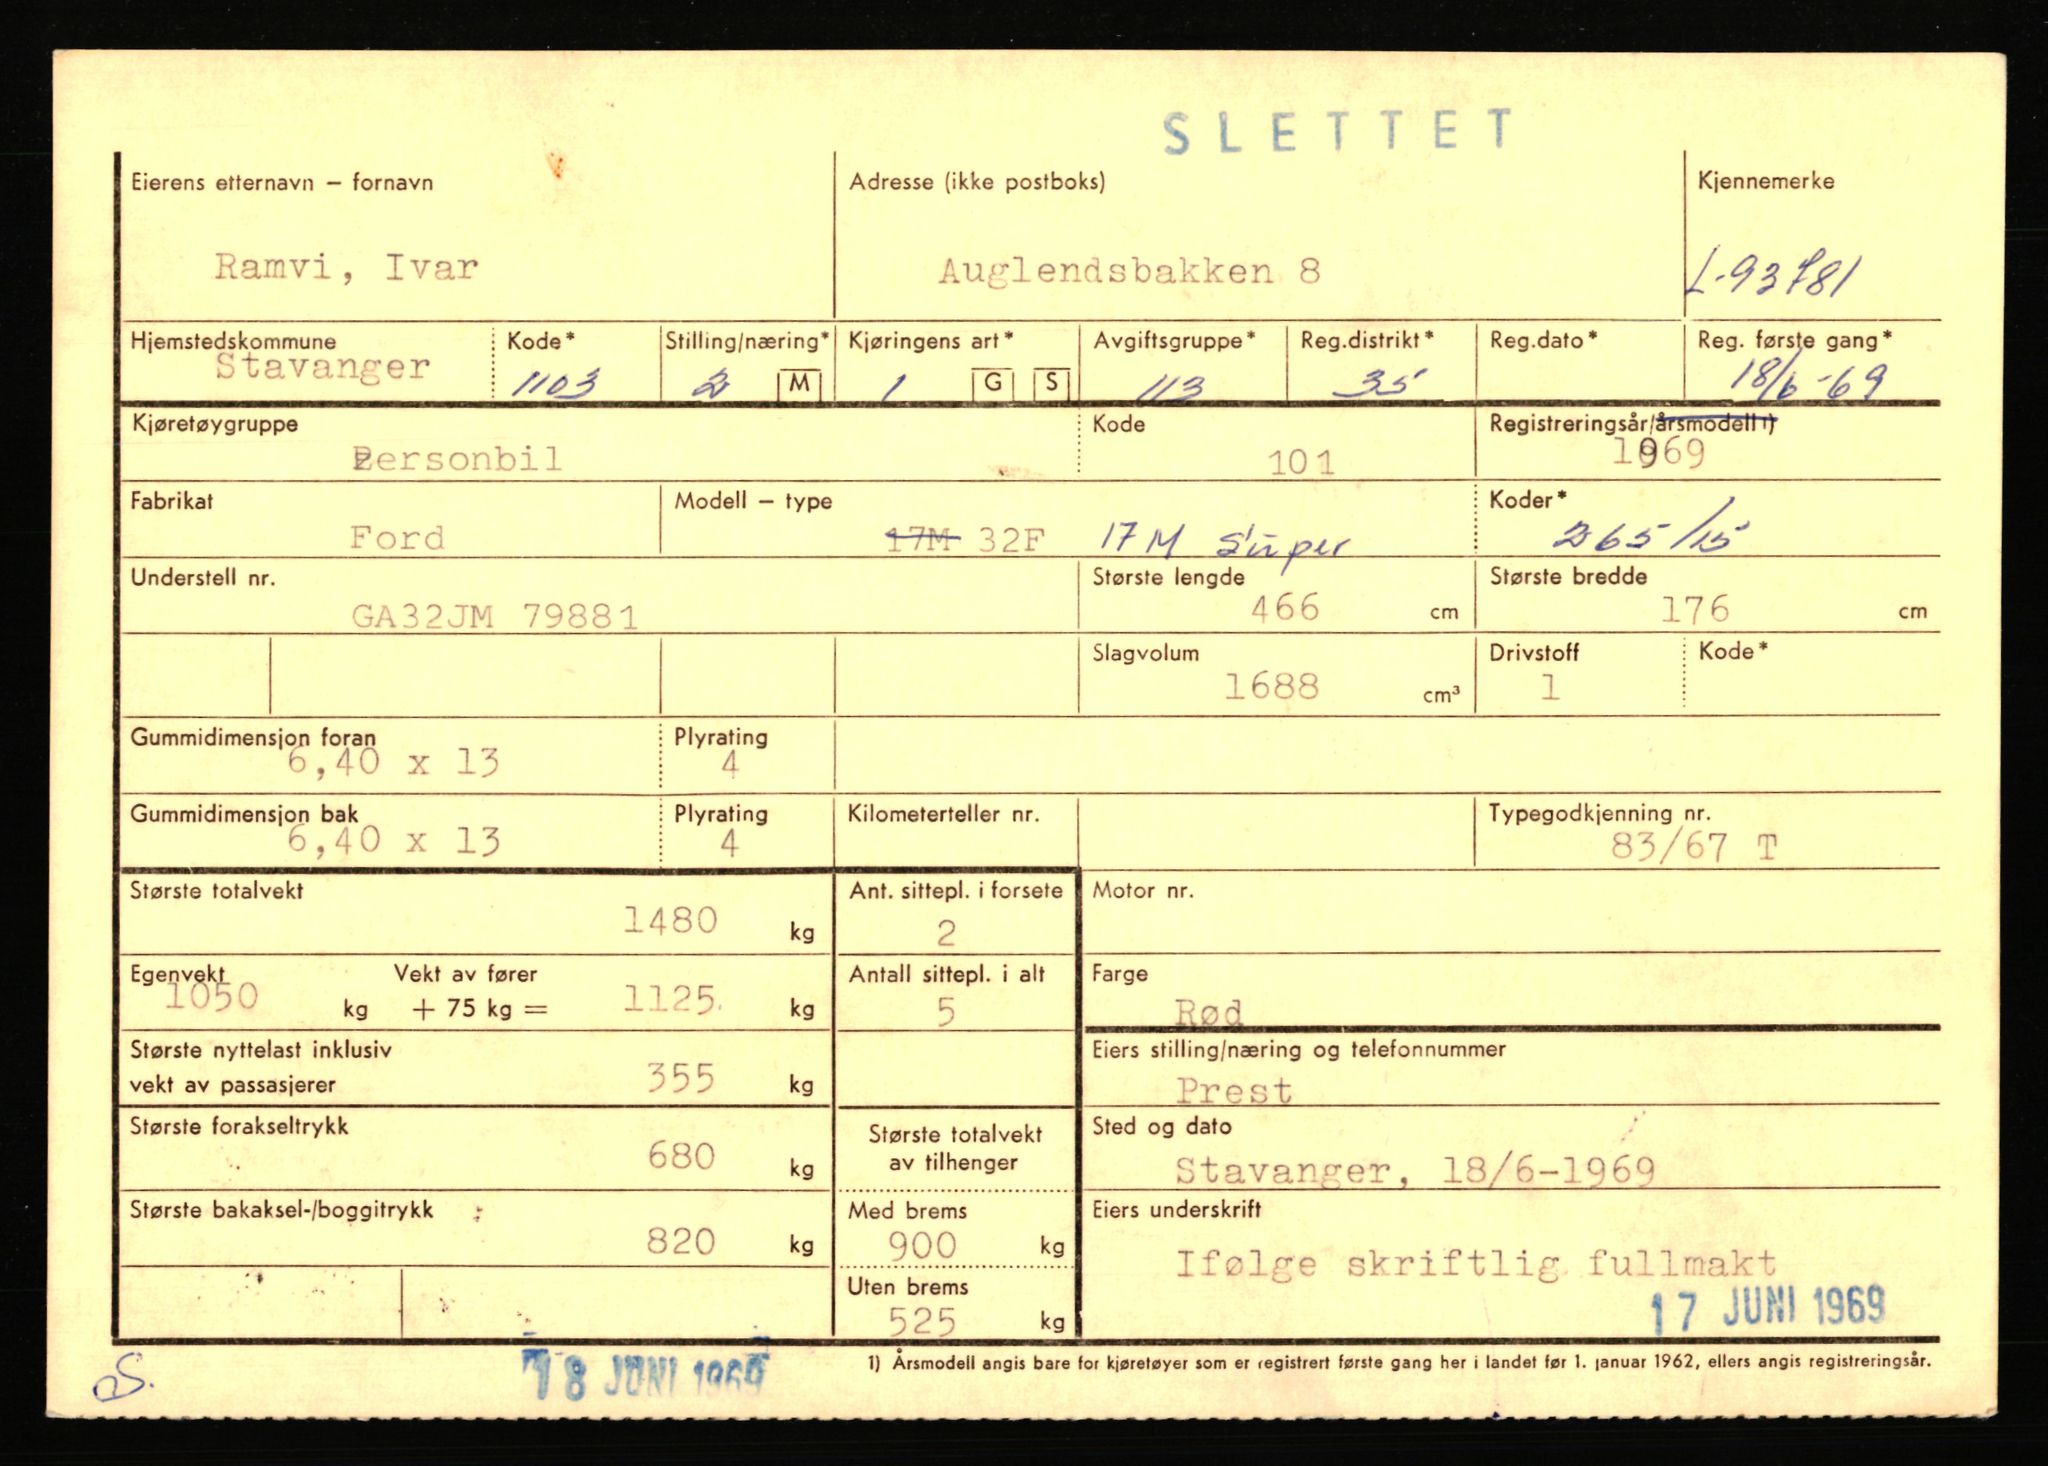 SLETTET
Eierens etternavn – fornavn Adresse (ikke postboks) Kjennemerke
Ramvi, Ivar Auglendsbakken 8 L-93781
Hjemstedskommune Kode* Stilling/næring* Kjøringens art* Avgiftsgruppe* Reg.distrikt* Reg.dato* Reg. første gang*
Stavanger 1103 2 M 1 G S 113 35 18/6-69
Kjøretøygruppe Kode Registreringsår/årsmodell 1)
Personbil 101 1969
Fabrikat Modell – type Koder*
Ford 17M 32F 17M Super 265/15
Understell nr. Største lengde Største bredde
GA32JM 79881 466 cm 176 cm
Slagvolum Drivstoff Kode*
1688 cm³ 1
Gummidimensjon foran Plyrating
6,40 x 13 4
Gummidimensjon bak Plyrating Kilometerteller nr. Typegodkjenning nr.
6,40 x 13 4 83/67 T
Største totalvekt Ant. sittepl. i forsete Motor nr.
1480 kg 2
Egenvekt Vekt av fører Antall sittepl. i alt Farge
1050 kg + 75 kg = 1125 kg 5 Rød
Største nyttelast inklusiv Eiers stilling/næring og telefonnummer
vekt av passasjerer 355 kg Prest
Største forakseltrykk Største totalvekt Sted og dato
680 kg av tilhenger Stavanger, 18/6-1969
Største bakaksel-/boggitrykk Med brems Eiers underskrift
820 kg 900 kg Ifølge skriftlig fullmakt
Uten brems 17 JUNI 1969
525 kg
18 JUNI 1969 1) Årsmodell angis bare for kjøretøyer som er registrert første gang her i landet før 1. januar 1962, ellers angis registreringsår.